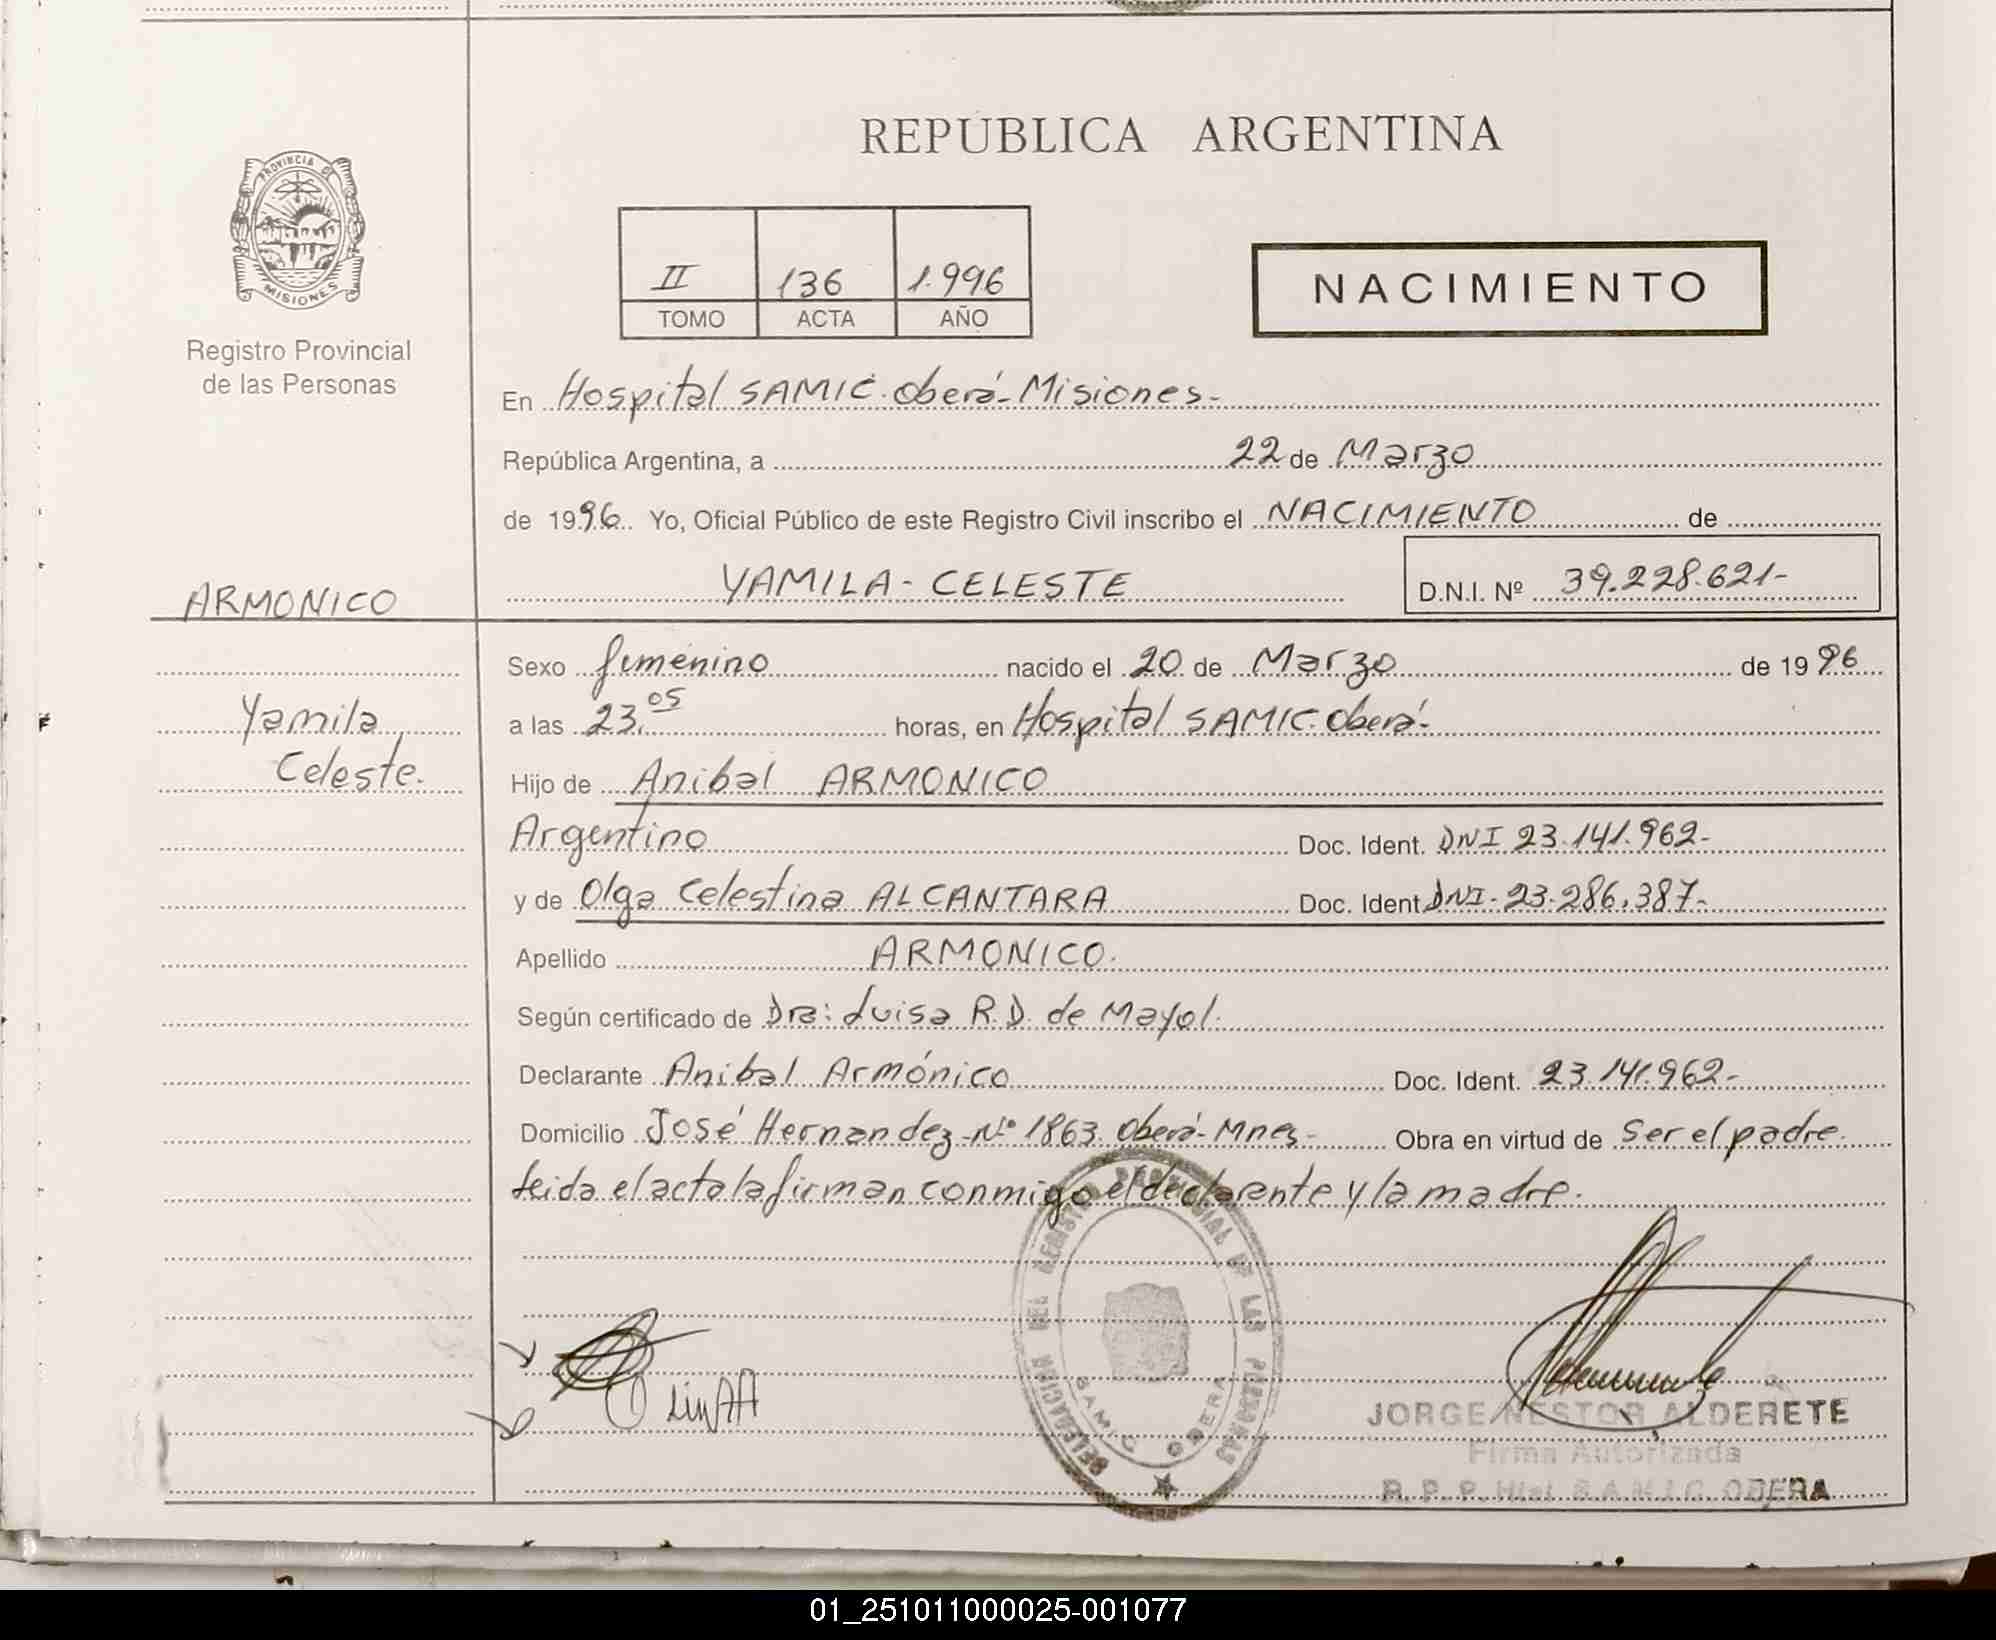 REPÚBLICA ARGENTINA
PROVINCIA DE
MISIONES
Registro Provincial
de las Personas
II 136 1.996
TOMO ACTA AÑO
NACIMIENTO
En Hospital SAMIC. Oberá- Misiones-
República Argentina, a 22 de Marzo
de 1996. Yo, Oficial Público de este Registro Civil inscribo el NACIMIENTO de
YAMILA - CELESTE D.N.I. Nº 39.228.621-
ARMONICO
Yamila
Celeste.
Sexo femenino nacido el 20 de Marzo de 1996
a las 23.05 horas, en Hospital SAMIC. Oberá-
Hijo de Anibal ARMONICO
Argentino Doc. Ident. DNI 23.141.962-
y de Olga Celestina ALCANTARA Doc. Ident DNI- 23.286.387-
Apellido ARMONICO.
Según certificado de Dra: Luisa R.D. de Mayol.
Declarante Anibal Armónico Doc. Ident. 23.141.962-
Domicilio José Hernandez-Nº 1863. Oberá- Mnes- Obra en virtud de Ser el padre.
Leida el acta la firman conmigo el declarante y la madre.
DELEGACION DEL REGISTRO PROVINCIAL DE LAS PERSONAS
SAMIC OBERA
JORGE NESTOR ALDERETE
Firma Autorizada
R. P. P. S.A.M.I.C. OBERA
01_251011000025-001077